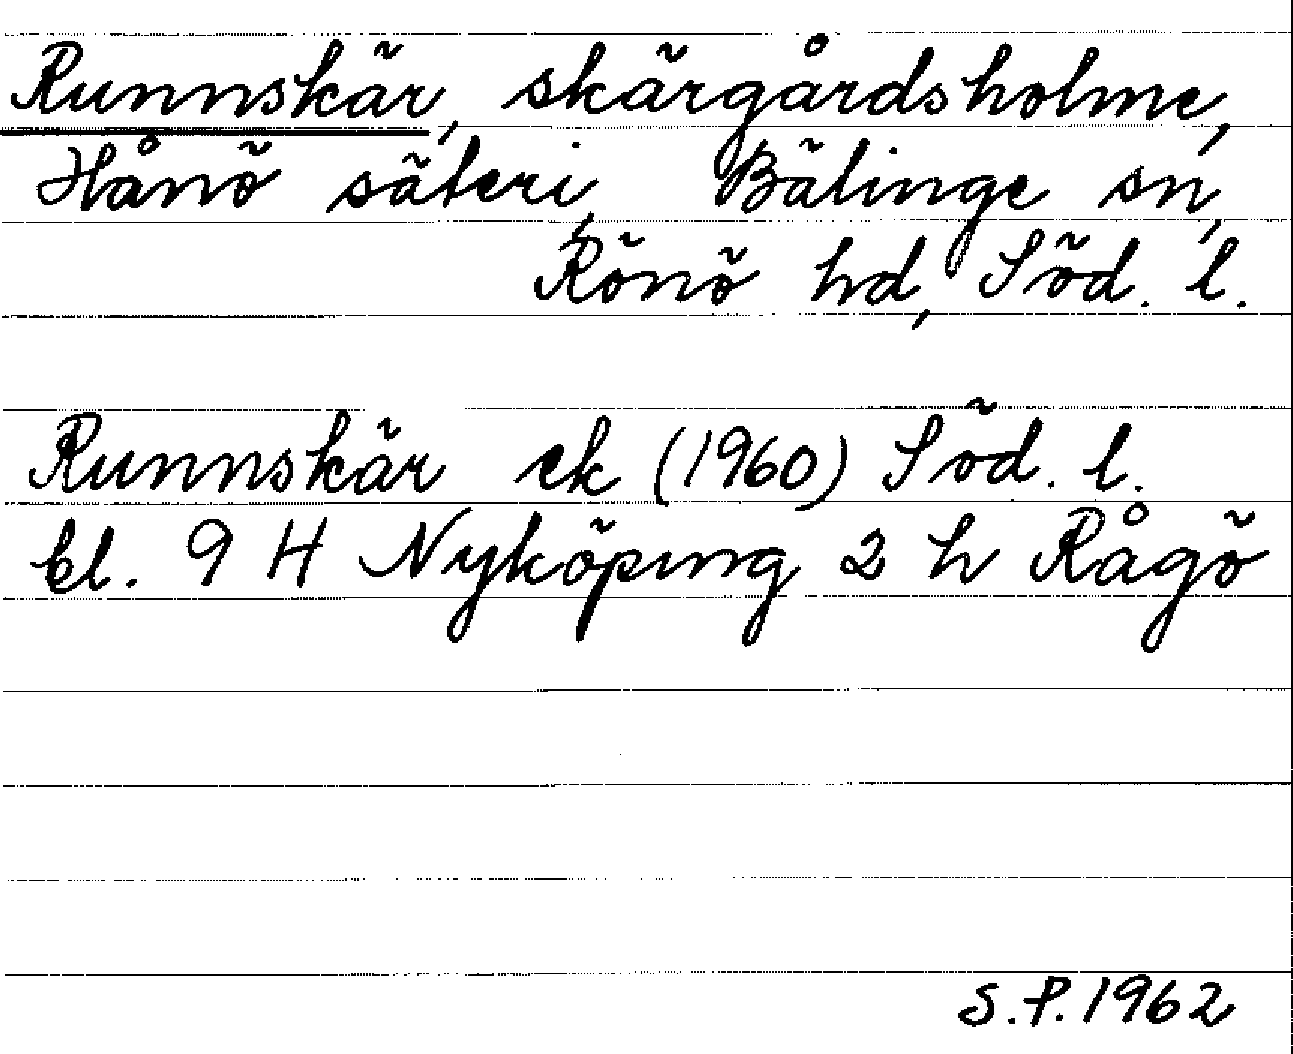 Runnskär, skärgårdsholme,
Hånö säteri, Bälinge sn,
Rönö hd, Söd. l.
Runnskär ek (1960) Söd. l.
bl. 9 H Nyköping 2 h Rågö
S.P. 1962